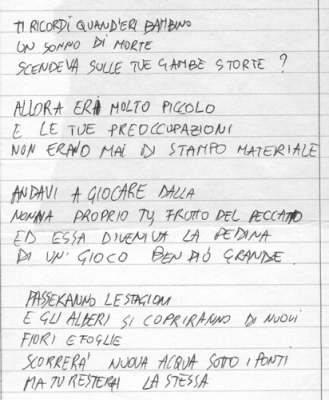 TI RICORDI QUAND'ERI BAMBINO
UN SONNO DI MORTE
SCENDEVA SULLE TUE GAMBE STORTE ?
ALLORA ERI MOLTO PICCOLO
E LE TUE PREOCCUPAZIONI
NON ERANO MAI DI STAMPO MATERIALE
ANDAVI A GIOCARE DALLA
NONNA PROPRIO TU, FRUTTO DEL PECCATO
ED ESSA DIVENIVA LA PEDINA
DI UN' GIOCO BEN PIÓ GRANDE.
PASSERANNO LE STAGIONI
E GLI ALBERI SI COPRIRANNO DI NUOVI
FIORI E FOGLIE
SCORRERA' NUOVA ACQUA SOTTO I PONTI
MA TU RESTERAI LA STESSA